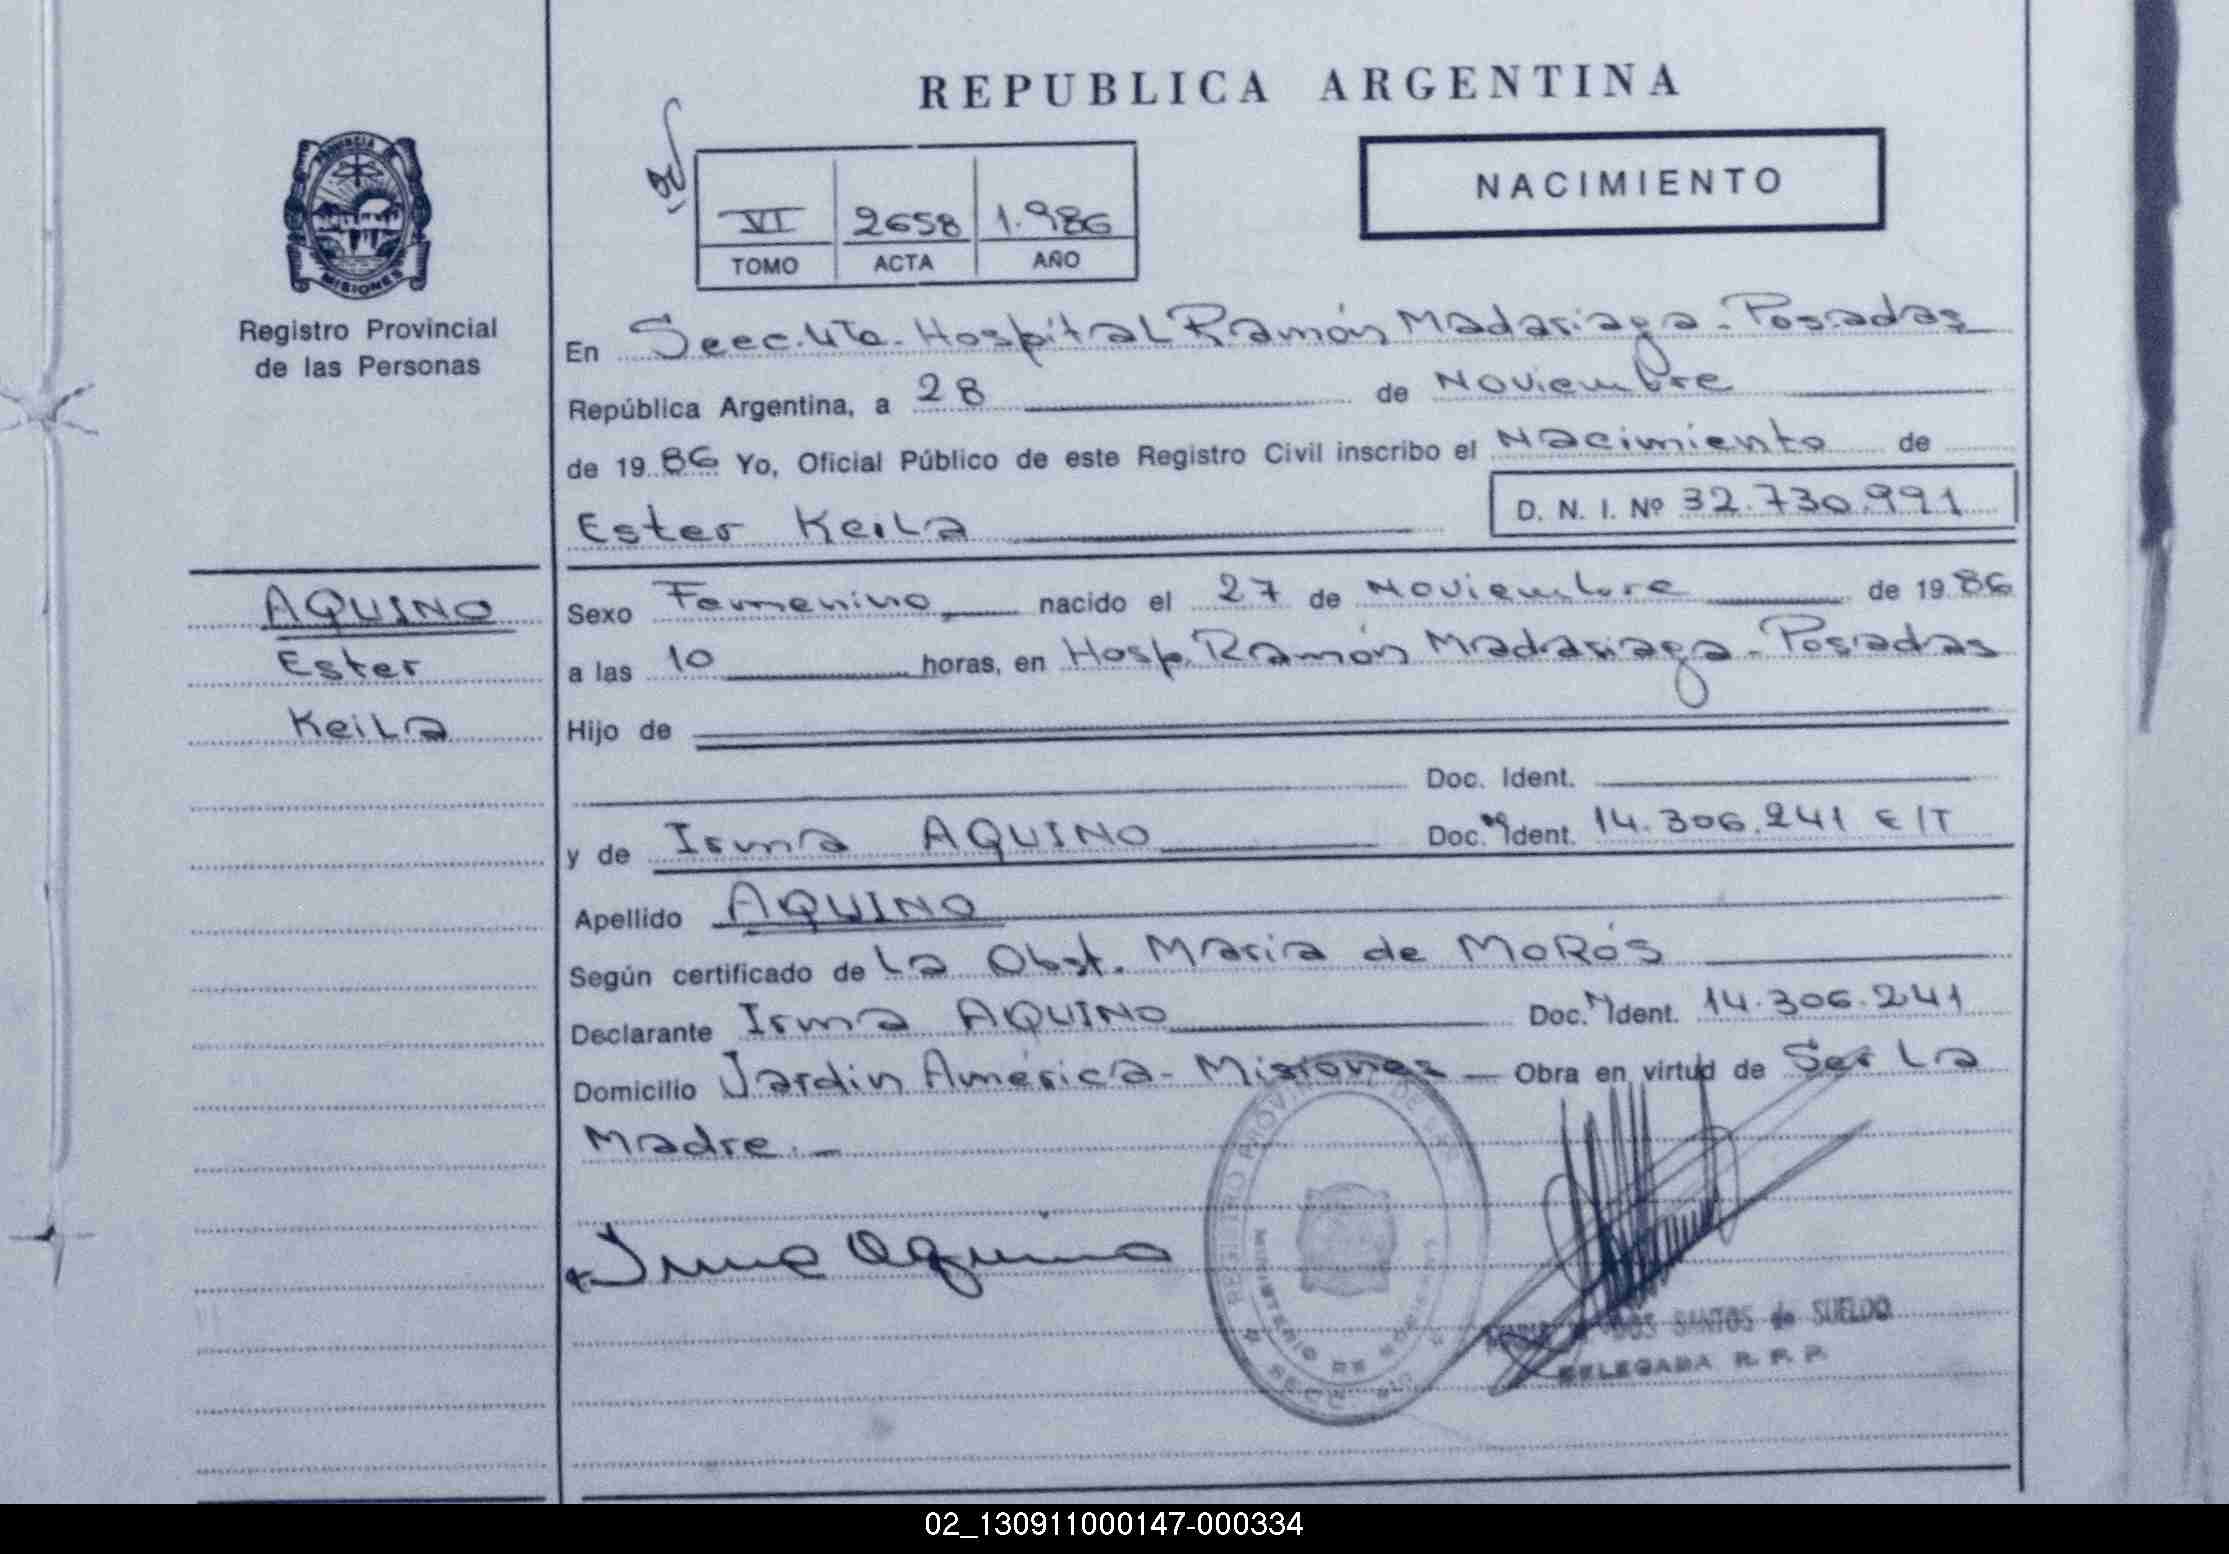 REPUBLICA ARGENTINA
NACIMIENTO
VI 2658 1.986
TOMO ACTA AÑO
PROVINCIA DE
MISIONES
Registro Provincial
de las Personas
En Secc. 4ta. Hospital Ramón Madariaga - Posadas
República Argentina, a 28 de Noviembre
de 1986 Yo, Oficial Público de este Registro Civil inscribo el Nacimiento de
Ester Keila D. N. I. Nº 32.730.991
AQUINO
Ester
Keila
Sexo Femenino nacido el 27 de Noviembre de 1986
a las 10 horas, en Hosp. Ramón Madariaga - Posadas
Hijo de
Doc. Ident.
y de Irma AQUINO Doc. Ident. 14.306.241 E/T
Apellido AQUINO
Según certificado de La Obst. Maria de MoRós
Declarante Irma AQUINO Doc. Ident. 14.306.241
Domicilio Jardin América - Misiones - Obra en virtud de Ser La
Madre. -
Irma Aquino
REGISTRO PROVINCIAL DE LAS
MINISTERIO DE
DOS SANTOS de SUELDO
DELEGADA R. P. P.
02_130911000147-000334